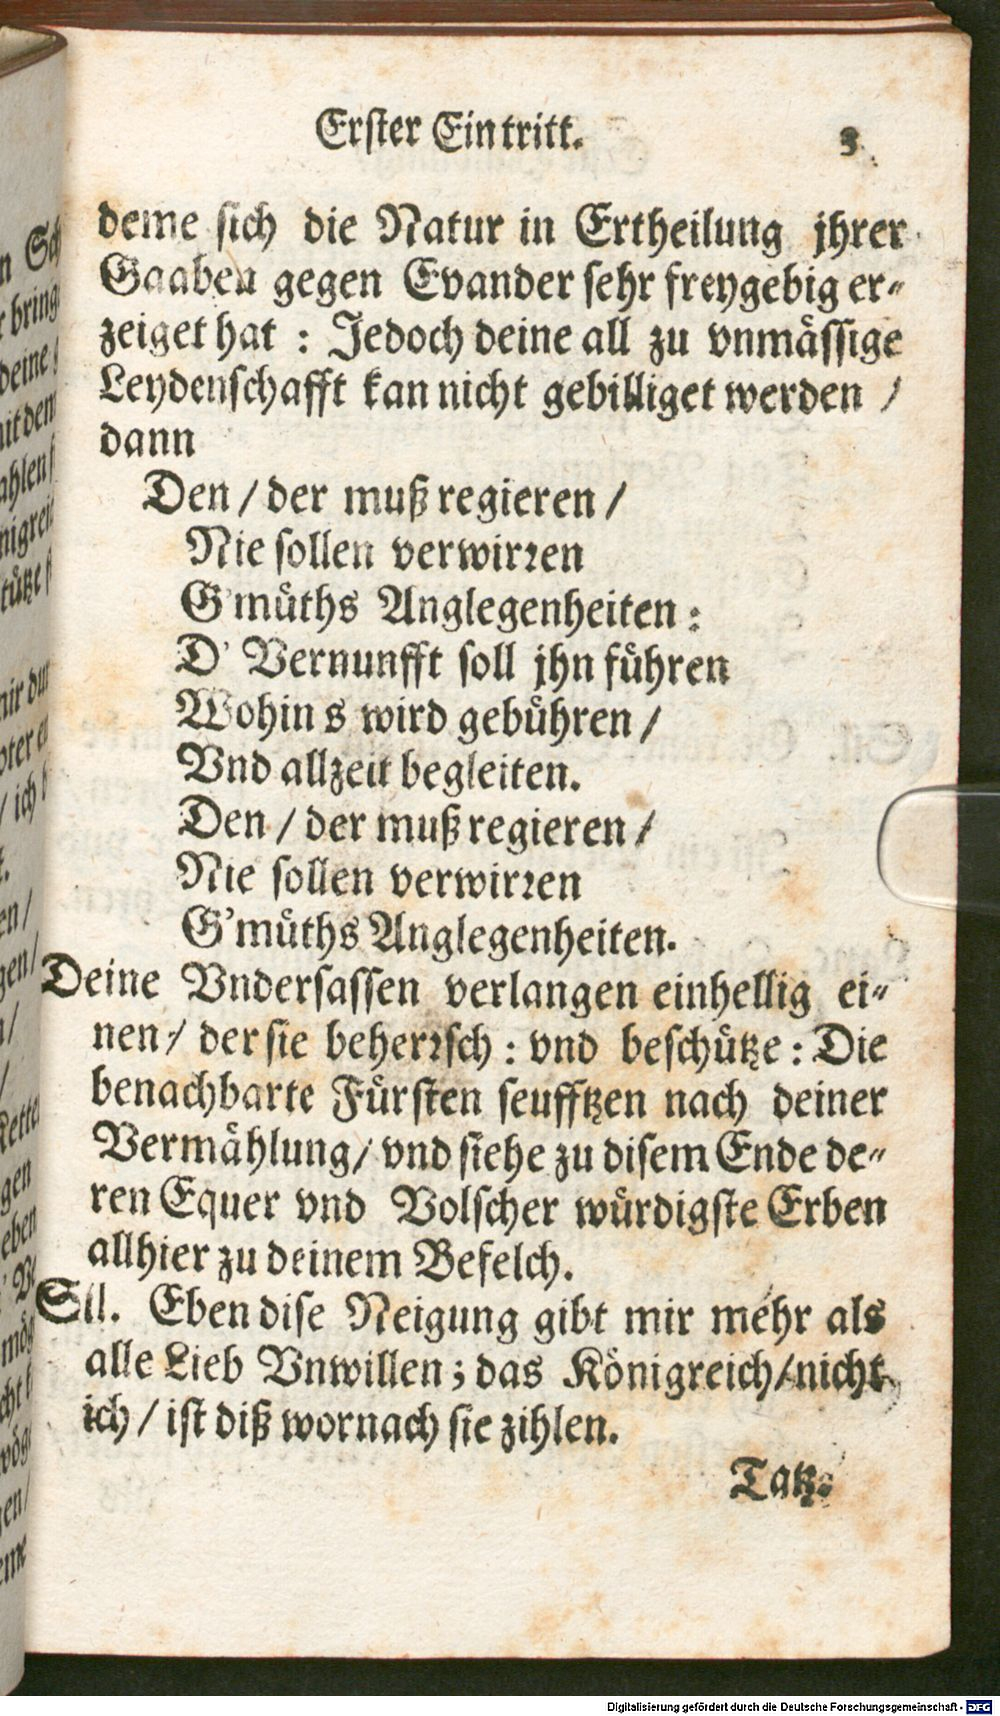 Erster Eintritt. 3
deme sich die Natur in Ertheilung jhrer
Gaaben gegen Evander sehr freygebig er-
zeiget hat : Jedoch deine all zu vnmässige
Leydenschafft kan nicht gebilliget werden /
dann
Den / der muß regieren /
Nie sollen verwirꝛen
G'müths Anglegenheiten :
D' Vernunfft soll jhn führen
Wohins wird gebühren /
Vnd allzeit begleiten.
Den / der muß regieren /
Nie sollen verwirꝛen
G'müths Anglegenheiten.
Deine Vndersassen verlangen einhellig ei-
nen / der sie beherꝛsch : vnd beschütze : Die
benachbarte Fürsten seufftzen nach deiner
Vermählung / vnd siehe zu disem Ende de-
ren Equer vnd Volscher würdigste Erben
allhier zu deinem Befelch.
Sil. Eben dise Neigung gibt mir mehr als
alle Lieb Vnwillen; das Königreich / nicht
ich / ist diß wornach sie zihlen.
Tatz.
Digitalisierung gefördert durch die Deutsche Forschungsgemeinschaft - DFG